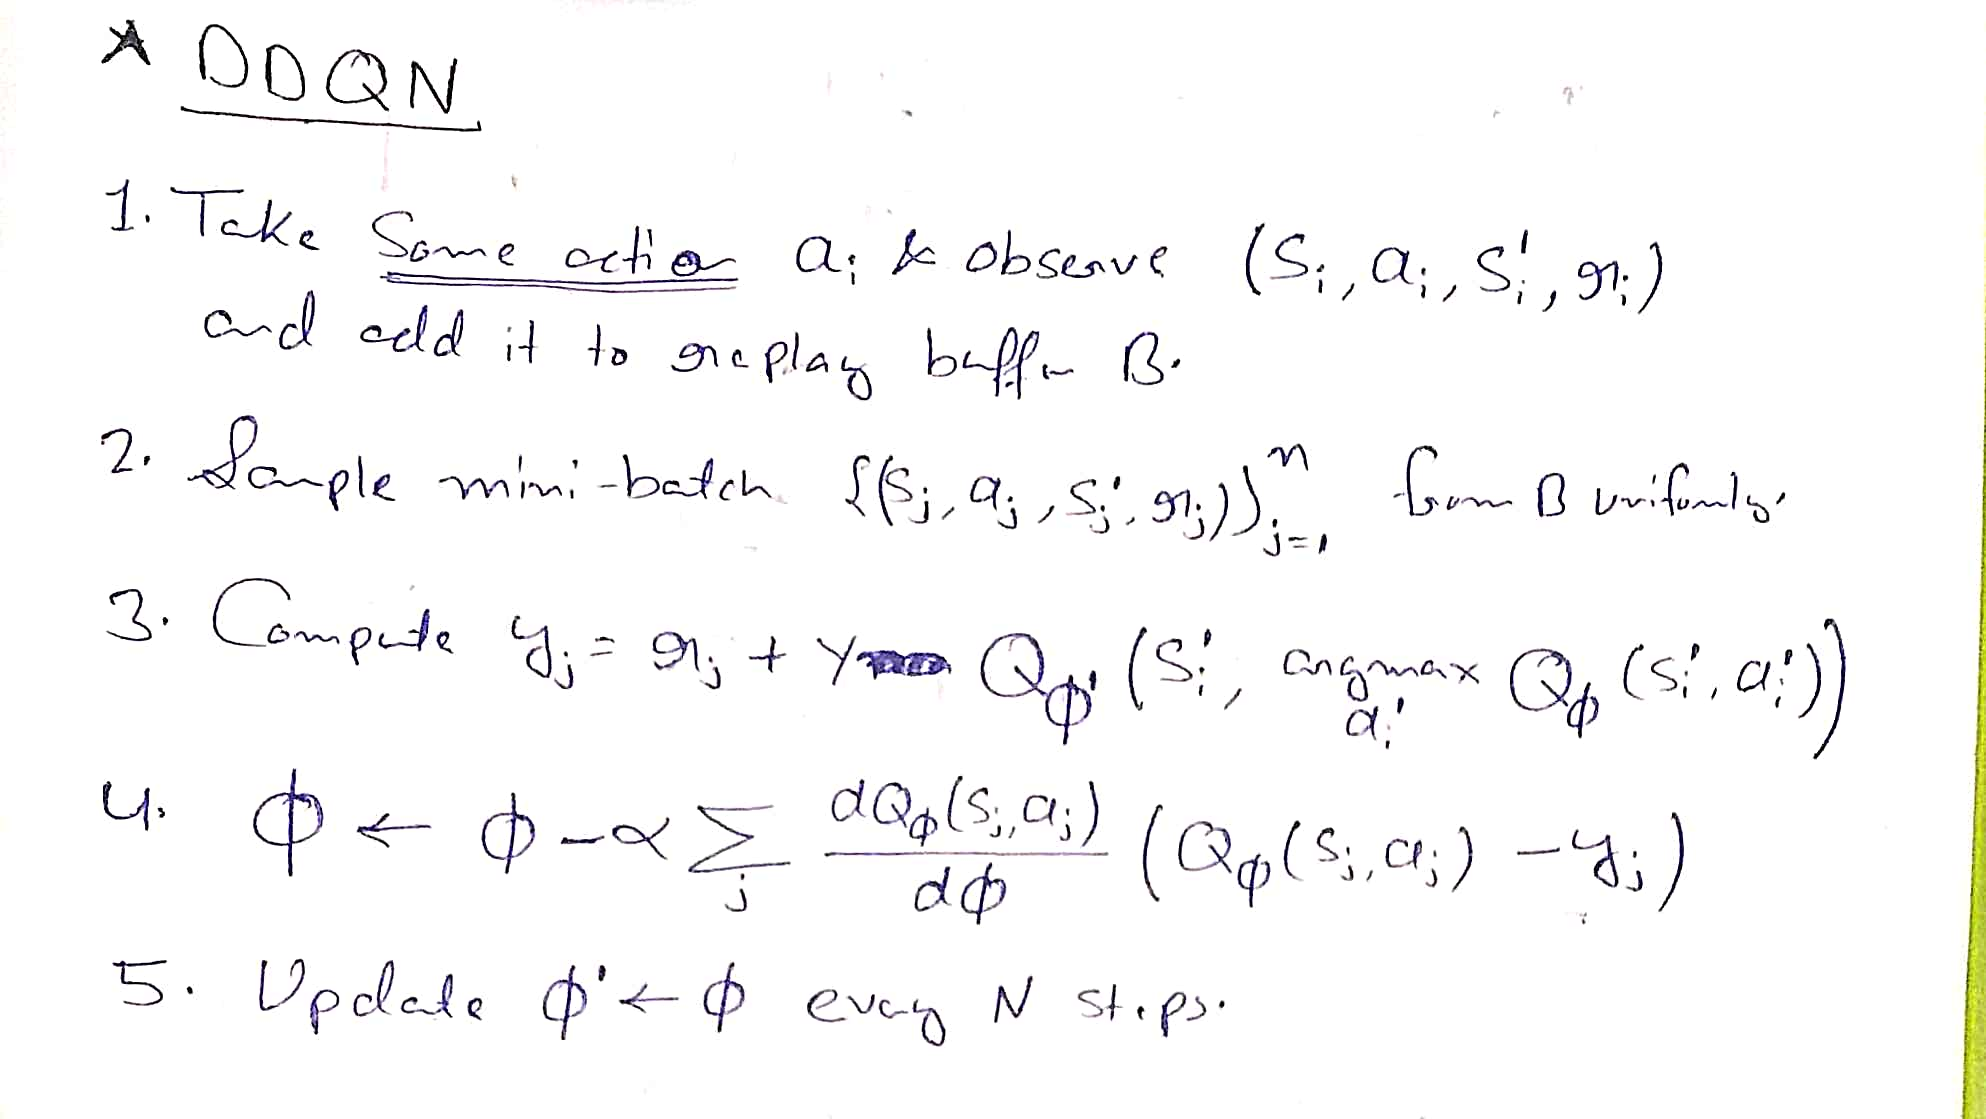 * DDQN
1. Take Some action aᵢ & observe (Sᵢ, aᵢ, Sᵢ', rᵢ)
and add it to replay buffer B.
2. Sample mini-batch {(Sⱼ, aⱼ, Sⱼ', rⱼ)}ⁿⱼ₌₁ from B uniformly.
3. Compute yⱼ = rⱼ + γ Q_ϕ' (Sᵢ', argmax_aᵢ' Q_ϕ (Sᵢ', aᵢ'))
4. ϕ ← ϕ - α Σⱼ dQ_ϕ(Sⱼ, aⱼ)/dϕ (Q_ϕ(Sⱼ, aⱼ) - yⱼ)
5. Update ϕ' ← ϕ every N steps.